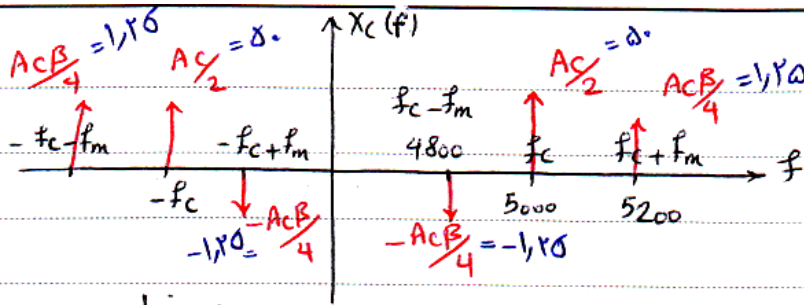 X_c(f)
A_cβ/4 = ۱,۲۵
A_c/2 = ۵۰
A_c/2 = ۵۰
A_cβ/4 = ۱,۲۵
f_c - f_m
- f_c - f_m
- f_c + f_m
4800
f_c
f_c + f_m
f
- f_c
5000
5200
-۱,۲۵ = -A_cβ/4
-A_cβ/4 = -۱,۲۵